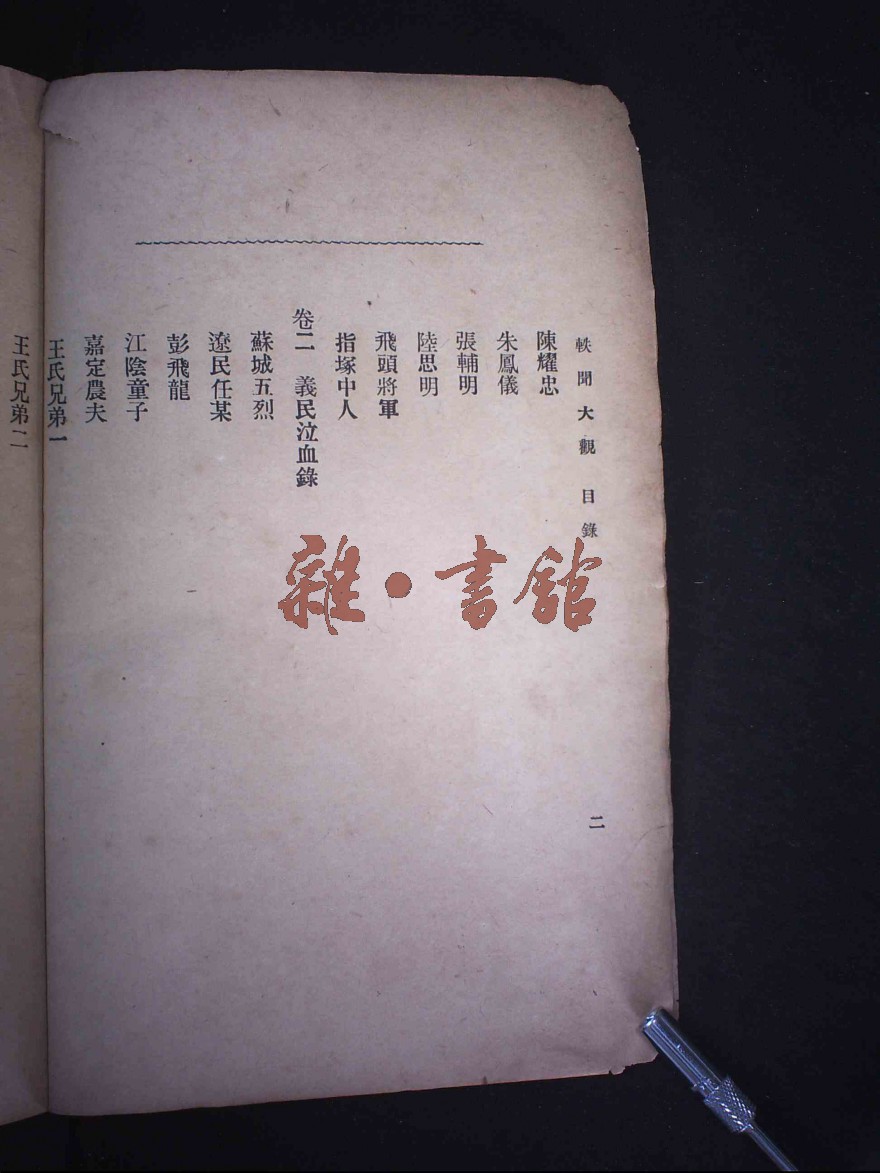 軼聞大觀 目錄
二
陳耀忠
朱鳳儀
張輔明
陸思明
飛頭將軍
指塚中人
卷二 義民泣血錄
蘇城五烈
遼民任某
彭飛龍
江陰童子
嘉定農夫
王氏兄弟一
王氏兄弟二
雜·書館